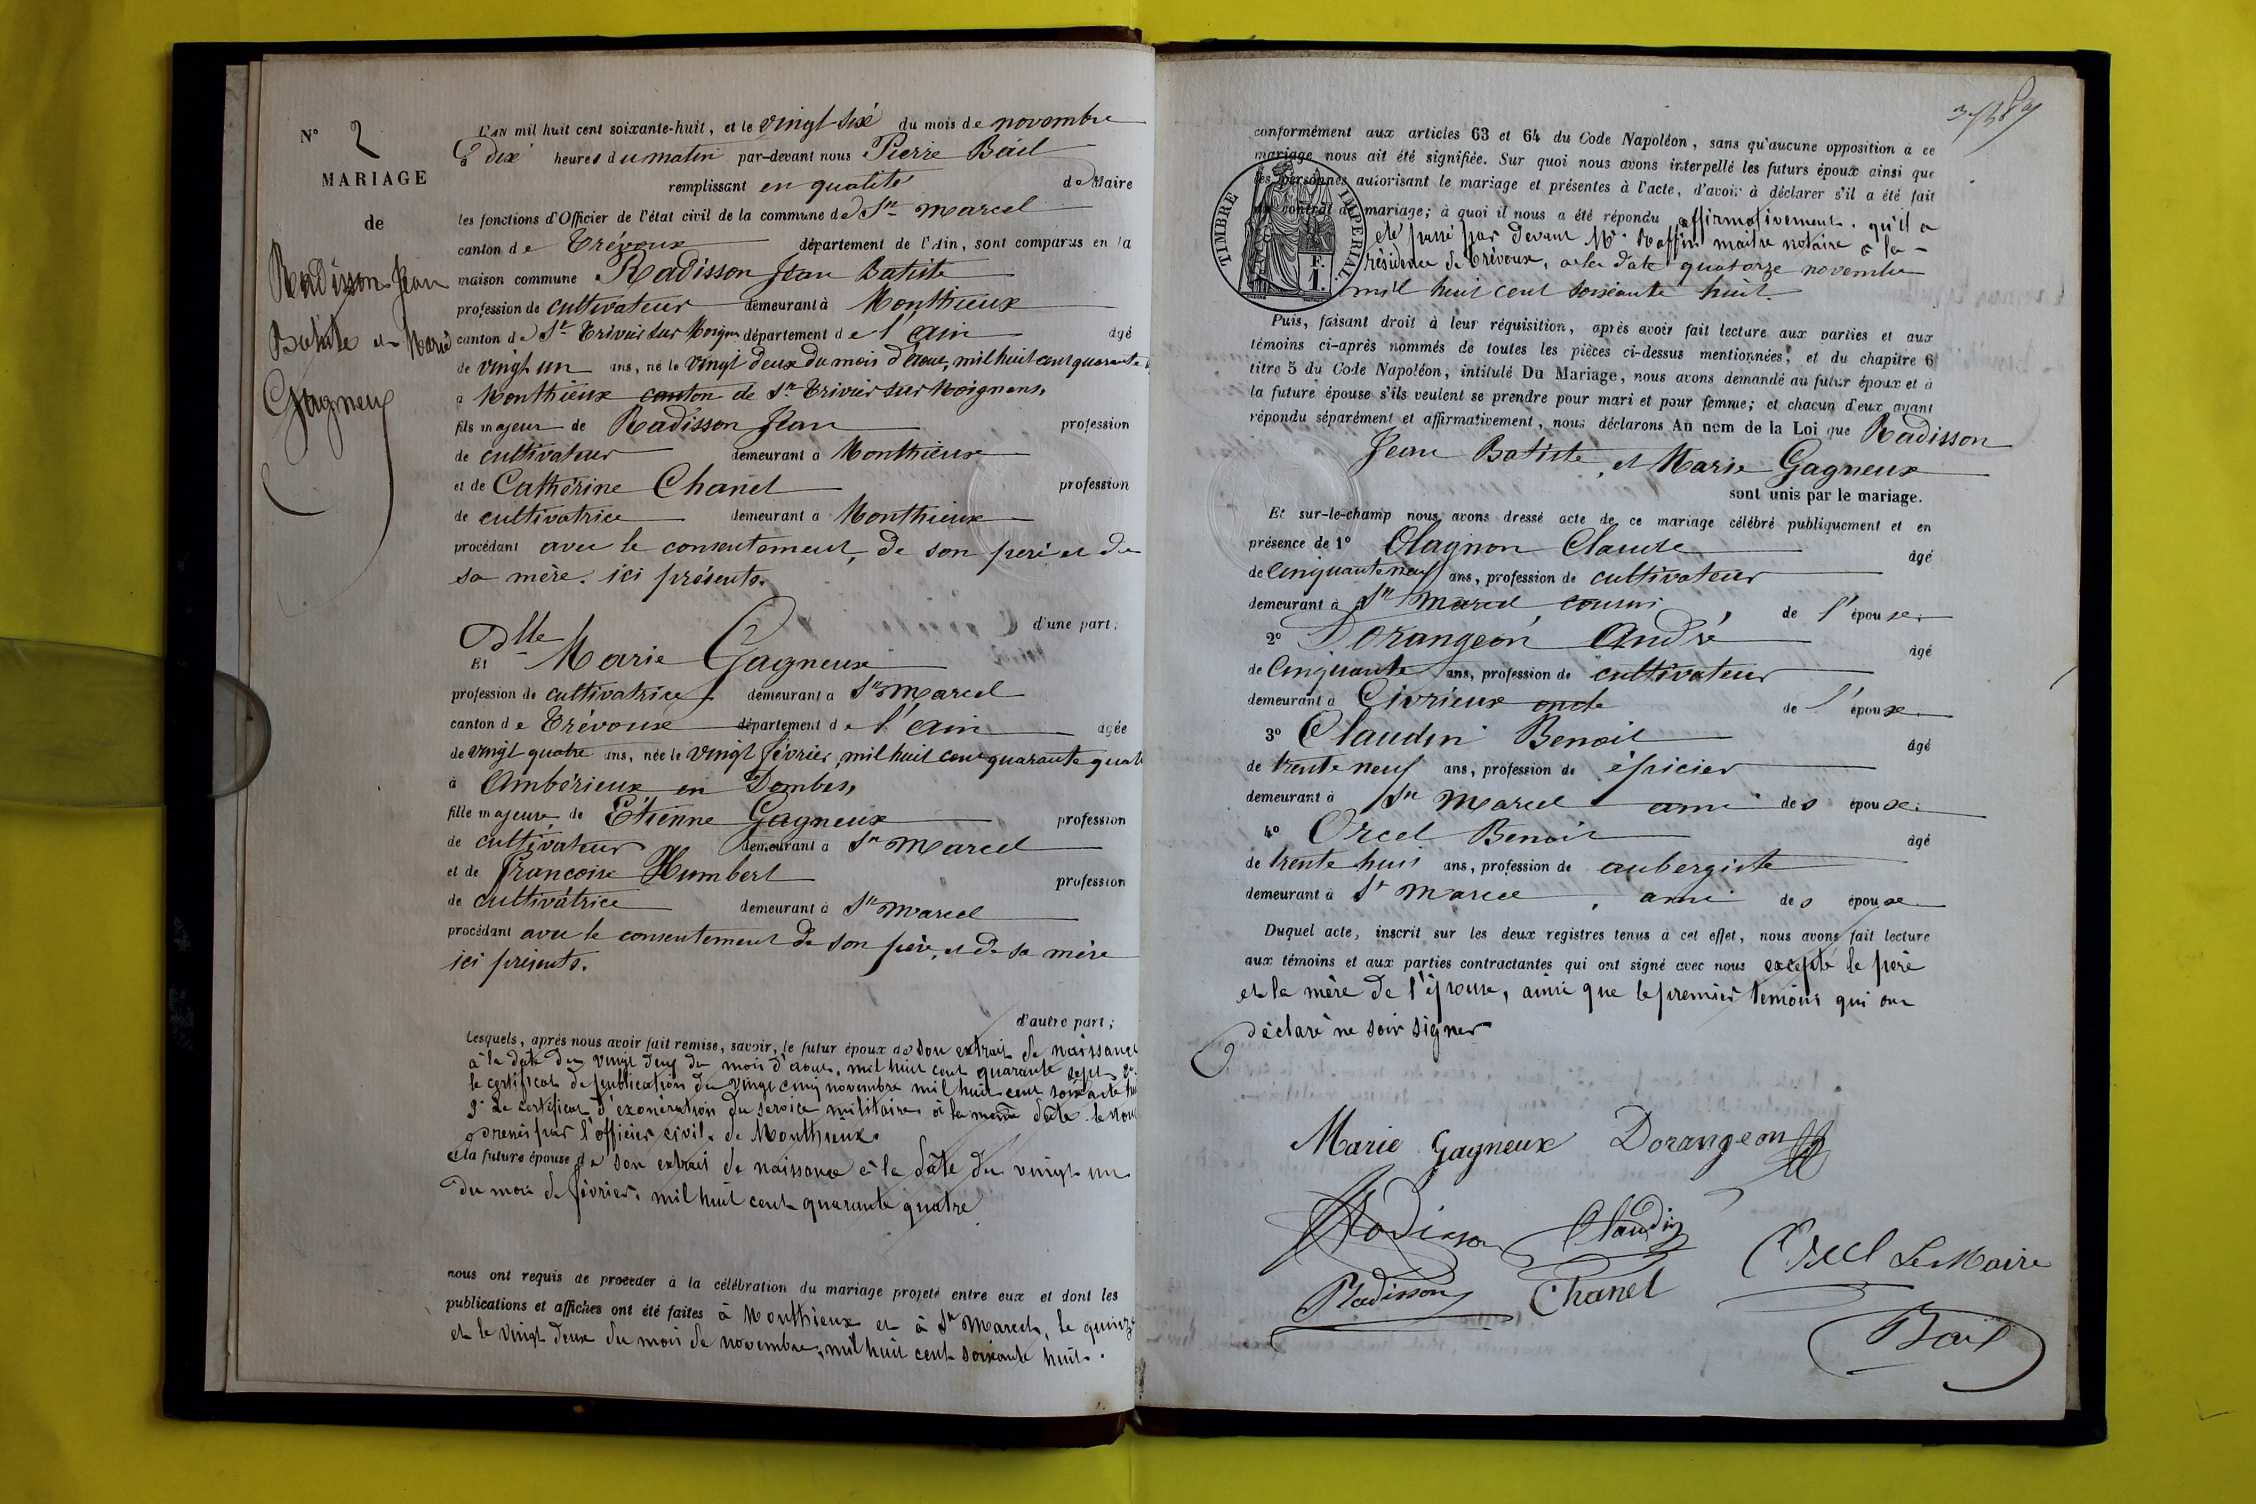 N° 2
MARIAGE
de
Radisson Jean
Batiste et Marie
Gagneux
L'AN mil huit cent soixante-huit, et le vingt six du mois de novembre
à dix heures du matin par-devant nous Pierre Bail
remplissant en qualité de Maire
les fonctions d'Officier de l'état civil de la commune de St Marcel
canton de Trévoux département de l'Ain, sont comparus en la
maison commune Radisson Jean Batiste
profession de cultivateur demeurant à Monthieux
canton de St Trivier sur Moignans département de l'Ain âgé
de vingt un ans, né le vingt deux du mois d'aout, mil huit cent quarante
à Monthieux canton de St Trivier sur Moignans,
fils majeur de Radisson Jean profession
de cultivateur demeurant à Monthieux
et de Cathérine Chanel profession
de cultivatrice demeurant à Monthieux
procédant avec le consentement, de son père et de
sa mère. ici présents.
d'une part;
Et Dlle Marie Gagneux
profession de cultivatrice demeurant à St Marcel
canton de Trévoux département de l'Ain âgée
de vingt quatre ans, née le vingt février, mil huit cent quarante quat
à Ambérieux en Dombes,
fille majeure de Etienne Gagneux profession
de cultivateur demeurant à St Marcel
et de francoise Humbert profession
de cultivatrice demeurant à St Marcel
procédant avec le consentement de son père, et de sa mère
ici présents.
d'autre part;
Lesquels, après nous avoir fait remise, savoir, le futur époux de son extrait de naissance
à la date du vingt deux du mois d'aout, mil huit cent quarante sept, 2°
le certificat de publication du vingt cinq novembre mil huit cent soixante hu
3° Le certificat d'exonération du service militaire à la même date. le tout
par l'officier civil. de Monthieux.
et la future épouse de son extrait de naissance à la date du vingt un
du mois de février, mil huit cent quarante quatre
nous ont requis de procéder à la célébration du mariage projeté entre eux et dont les
publications et affiches ont été faites à Monthieux et à St Marcel, le quinze
et le vingt deux du mois de novembre, mil huit cent soixante huit.
conformément aux articles 63 et 64 du Code Napoléon, sans qu'aucune opposition à ce
mariage nous ait été signifiée. Sur quoi nous avons interpellé les futurs époux ainsi que
les personnes autorisant le mariage et présentes à l'acte, d'avoir à déclarer s'il a été fait
un contrat de mariage; à quoi il nous a été répondu affirmativement. qu'il a
été passé par devant Me Raffin maitre notaire à la
résidence de Trévoux, à la date quatorze novembre
mil huit cent soixante huit.
TIMBRE IMPERIAL
F.
1.
Puis, faisant droit à leur réquisition, après avoir fait lecture aux parties et aux
témoins ci-après nommés de toutes les pièces ci-dessus mentionnées, et du chapitre 6
titre 5 du Code Napoléon, intitulé Du Mariage, nous avons demandé au futur époux et à
la future épouse s'ils veulent se prendre pour mari et pour femme; et chacun d'eux ayant
répondu séparément et affirmativement, nous déclarons Au nom de la Loi que Radisson
Jean Batiste, et Marie Gagneux
sont unis par le mariage.
Et sur-le-champ nous avons dressé acte de ce mariage célébré publiquement et en
présence de 1° Olagnon Claude âgé
de Cinquante neuf ans, profession de cultivateur
demeurant à St Marcel cousin de l'épouse.
2° Dorangeon André âgé
de Cinquante ans, profession de cultivateur
demeurant à Civrieux oncle de l'épouse
3° Claudin Benoit âgé
de trente neuf ans, profession de épicier
demeurant à St Marcel ami des époux.
4° Orcel Benoit âgé
de trente huit ans, profession de aubergiste
demeurant à St Marcel, ami des époux
Duquel acte, inscrit sur les deux registres tenus à cet effet, nous avons fait lecture
aux témoins et aux parties contractantes qui ont signé avec nous excepté le père
et la mère de l'épouse, ainsi que le premier temoins qui ont
déclaré ne savoir signer
Marie Gagneux Dorangeon
Radisson Claudin
Orcel Le Maire
Radisson Chanel
Bail